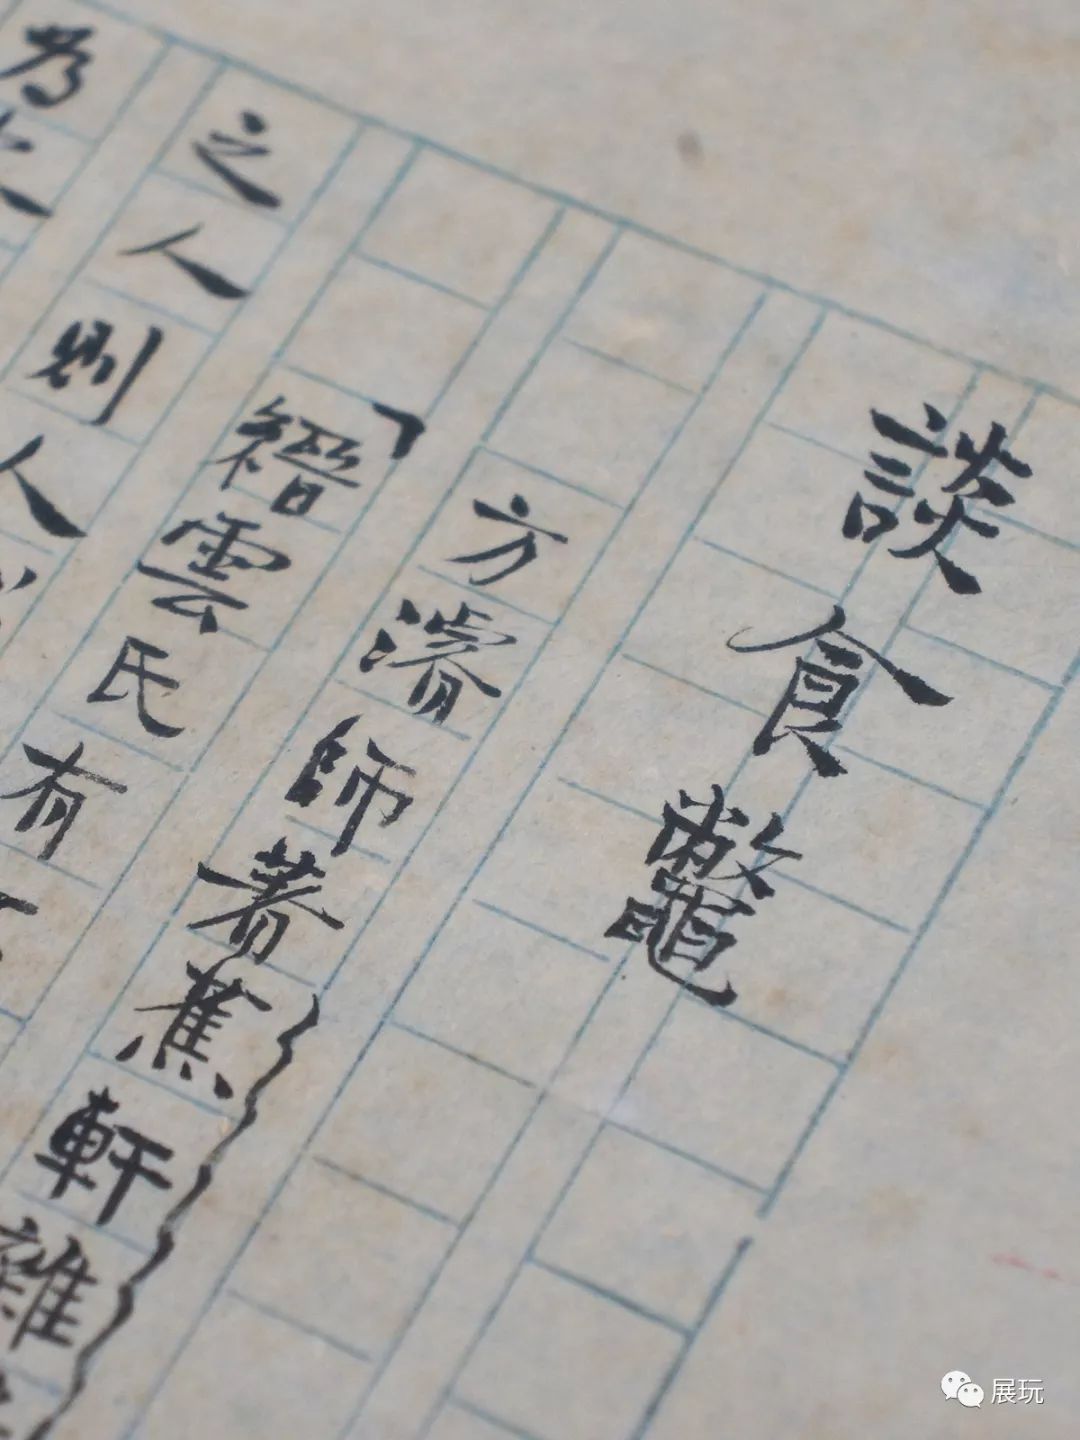 談食鼈
方濬師著蕉軒雜
「縉雲氏有
之人則人
為
展玩